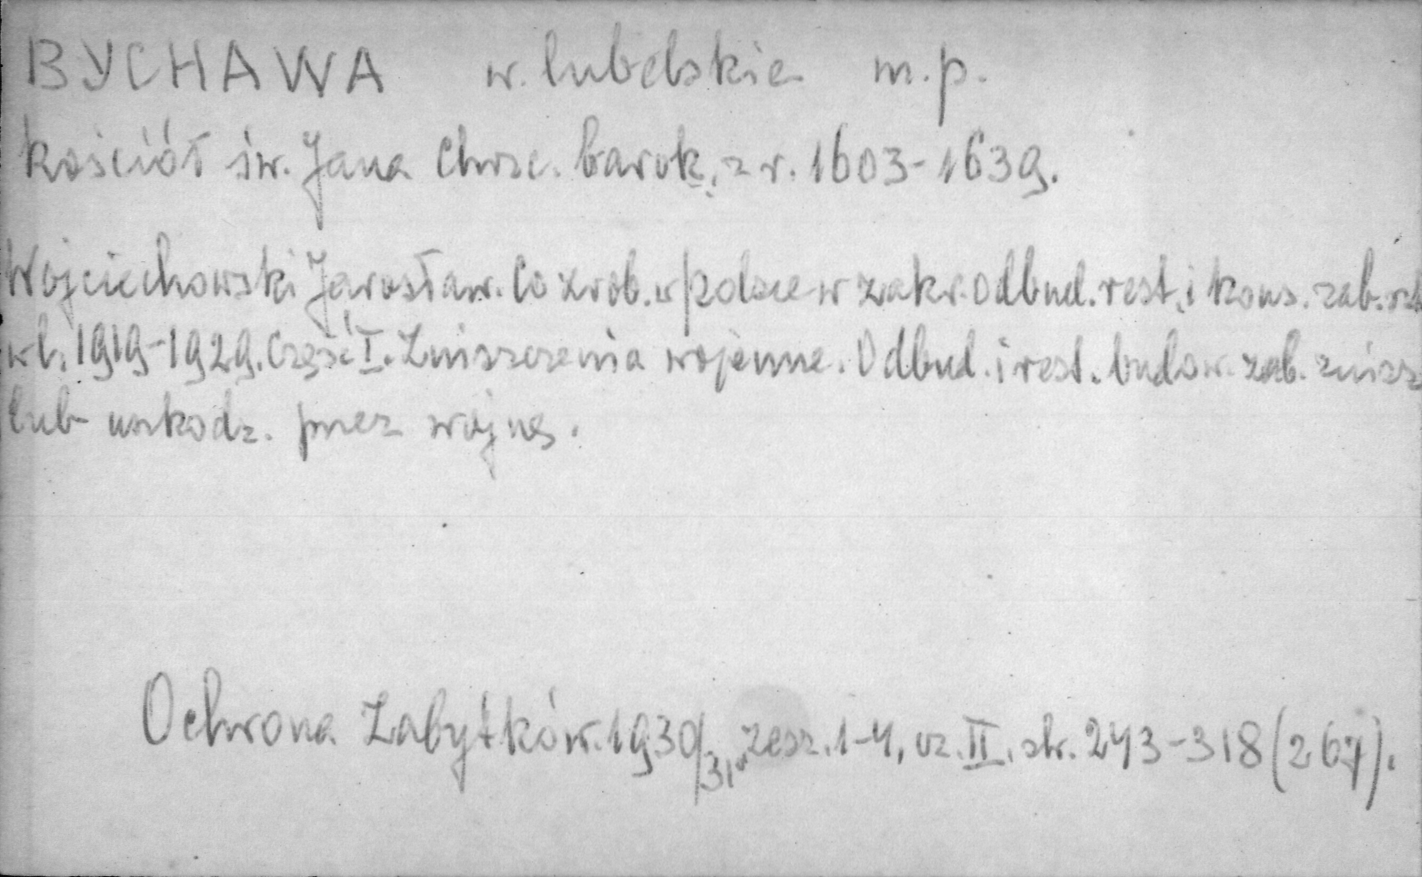 BYCHAWA w. lubelskie m.p.
Kościół św. Jana Chrzc. barok, z r. 1603-1639.
Wojciechowski Jarosław. Co zrob. w Polsce w zakr. odbud. rest. i kons. zab. szt.
w l. 1919-1929. Część I. Zniszczenia wojenne. Odbud. i rest. budow. zab. znisz
lub uszkodz. przez wojnę.
Ochrona Zabytków. 1930/31. zesz. 1-4, cz. II. str. 243-318 (267).